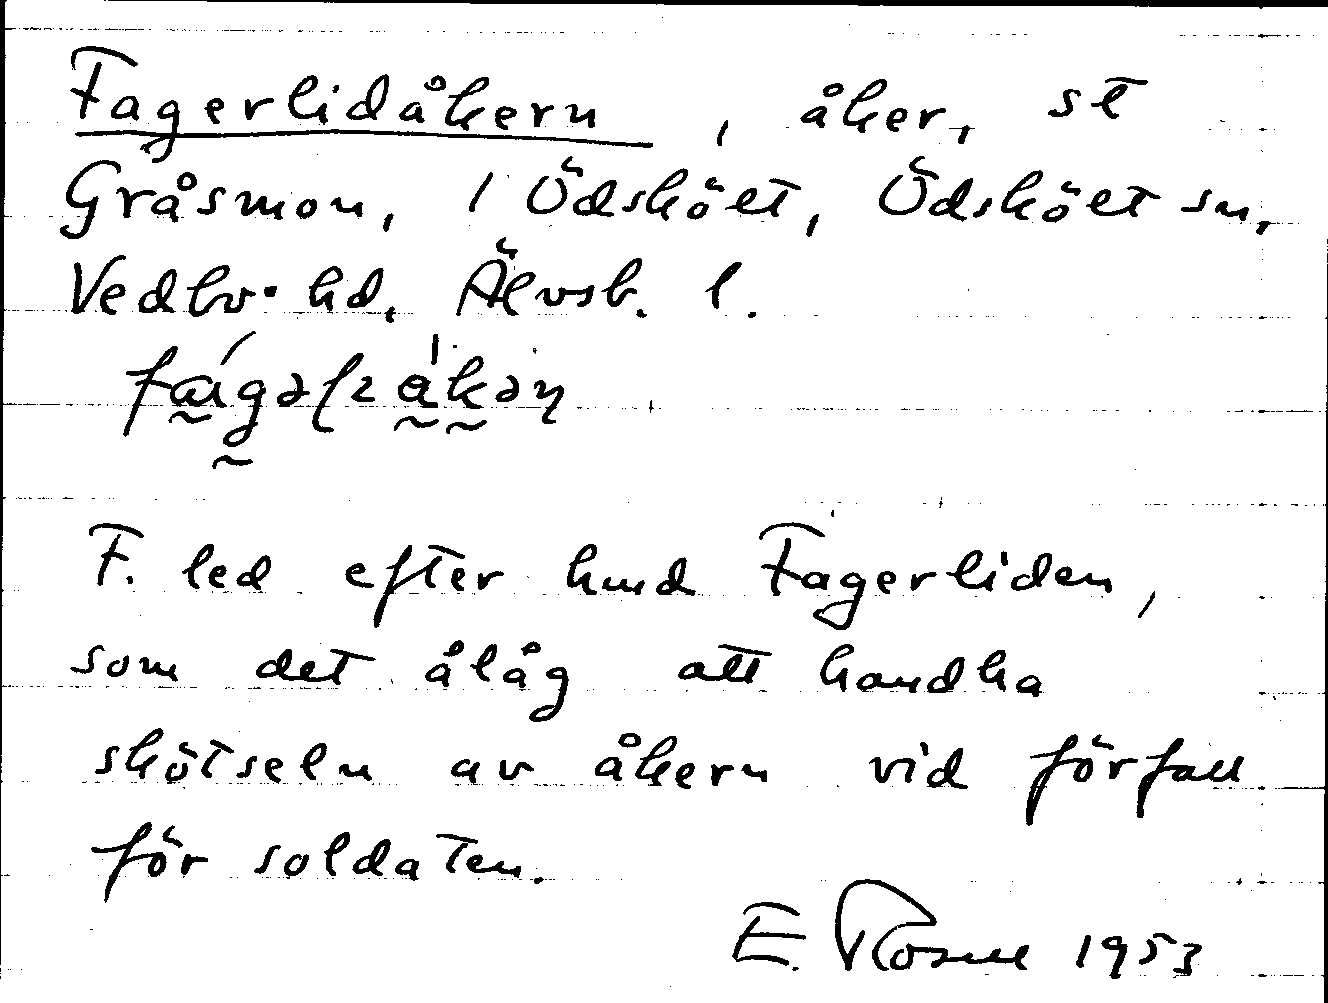 Fagerlidåkern, åker, st
Gråsmon, 1 Ödskölt, Ödskölt sn,
Vedbo hd, Älvsb. l.
F. led efter hmd Fagerliden,
som det ålåg att handha
skötseln av åkern vid förfall
för soldaten.
E. 1953